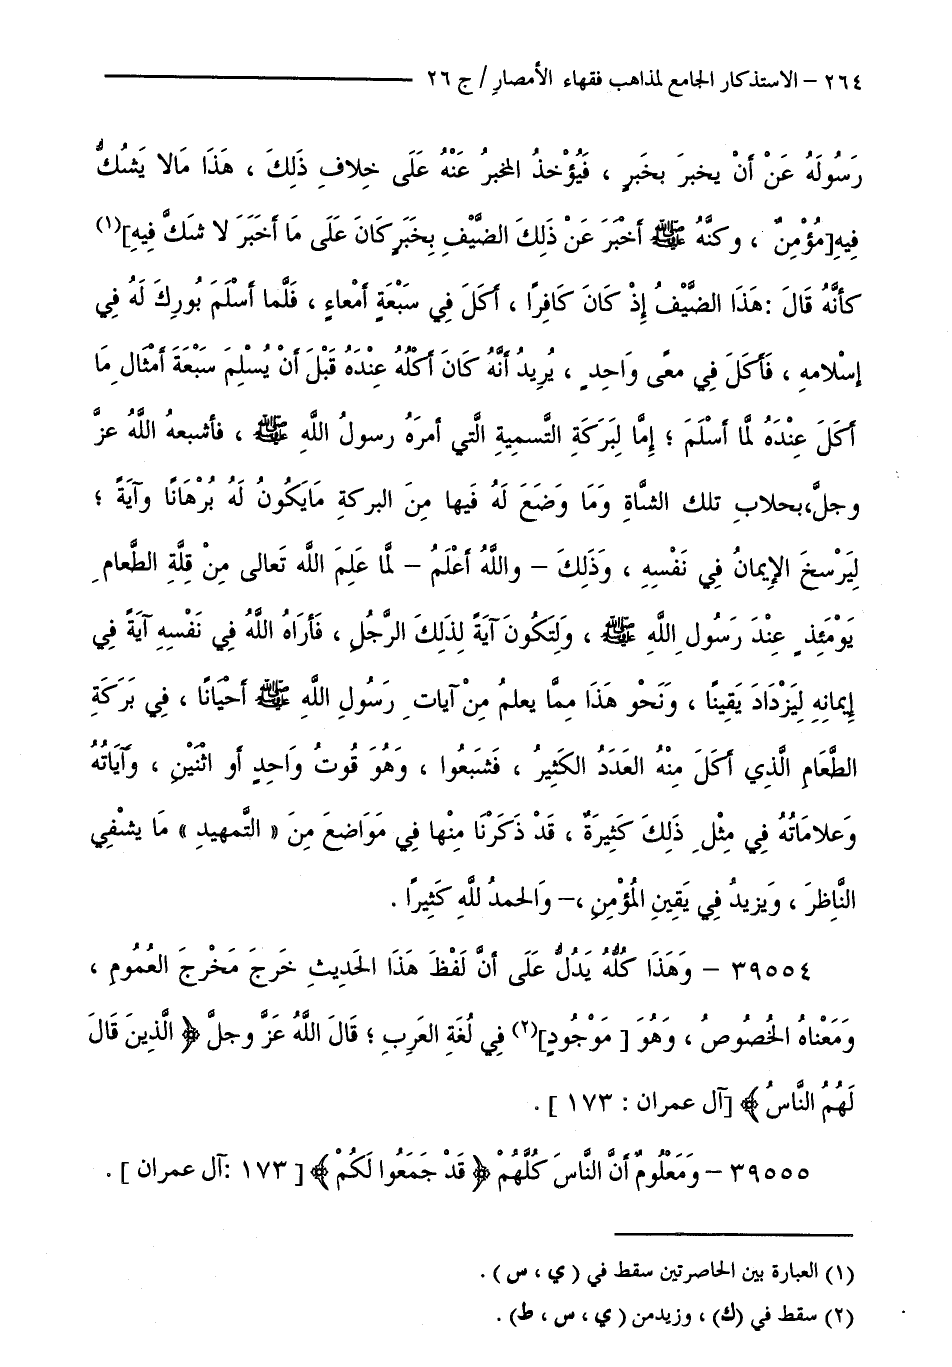 ٢٦٤ – الاستذكار الجامع لمذاهب فقهاء الأمصارِ / ج ٢٦
رَسُولَهُ عَنْ أَنْ يخبرَ بخَبرٍ ، فَيُؤْخذُ المخبرُ عَنْهُ عَلَى خِلافِ ذَلِكَ ، هَذَا مَالا يَشكُّ
فِيهِ[مُؤْمِنٌ ، وكنَّهُ ﷺ أخْبَرَ عَنْ ذَلِكَ الضَّيْفِ بِخَبَرٍ كَانَ عَلَى مَا أخبَرَ لا شكَّ فِيهِ](١)
كأنَّهُ قَالَ :هَذَا الضَّيْفُ إِذْ كَانَ كَافِرًا ، أكَلَ فِي سَبْعَةِ أمْعاءٍ ، فَلَّما أسْلَمَ بُورِكَ لَهُ فِي
إسْلامهِ ، فَأكَلَ فِي معًى وَاحِدٍ ، يُرِيدُ أنَّهُ كَانَ أكْلُهُ عِنْدَهُ قَبْلَ أنْ يُسْلِمَ سَبْعَةَ أمْثَالِ مَا
أكَلَ عِنْدَهُ لَّما أسْلَمَ ؛ إمَّا لِبَرَكَةِ التَّسميةِ الَّتي أمرَهُ رسولُ اللَّهِ ﷺ ، فأشبعهُ اللَّهُ عزَّ
وجلَّ،بحلابِ تلك الشَّاةِ وَمَا وضَعَ لَهُ فَيها مِنَ البركةِ مَايَكُونُ لَهُ بُرْهَانًا وآيَةً ؛
لِيَرْسخَ الإِيمانُ فِي نَفْسِهِ ، وَذَلِكَ – واللَّهُ أعْلَمُ – لَّما عَلِمَ اللَّه تَعالى مِنْ قِلَّةِ الطَّعامِ
يَوْمَئِذٍ عِنْدَ رَسُولِ اللَّهِ ﷺ ، وَلِتَكُونَ آيَةً لِذَلِكَ الرَّجُلِ ، فَأرَاهُ اللَّهُ فِي نَفْسِهِ آيَةً فِي
إيمانِهِ لِيَزْدَادَ يَقِينًا ، وَنَحْو هَذَا ممَّا يعلمُ مِنْ آيات رَسُولِ اللَّهِ ﷺ أحْيَانًا ، فِي بَرَكَةِ
الطَّعَامِ الَّذِي أكَلَ مِنْهُ العَدَدُ الكَثِيرُ ، فَشَبعُوا ، وهُوَ قُوتُ وَاحِدٍ أو اثْنَيْنِ ، وآيَاتُهُ
وَعلامَاتُهُ فِي مِثْلِ ذَلِكَ كَثِيرَةٌ ، قَدْ ذَكَرْنَا مِنْها فِي مَوَاضعَ مِنَ « التَّمهيدِ » مَا يشْفِي
النَّاظرَ ، وَيزيدُ فِي يَقينِ المُؤْمنِ ،– وَالحمدُ للَّهِ كَثيرًا .
٣٩٥٥٤ – وَهَذَا كُلُّهُ يَدُلُّ عَلَى أنَّ لَفْظَ هَذَا الحَديثِ خَرجَ مَخْرجَ العُمُومِ ،
وَمَعْنَاهُ الخُصُوصُ ، وَهُوَ [ مَوْجُودٍ](٢) فِي لُغَةِ العَربِ ؛ قَالَ اللَّهُ عَزَّ وجلَّ ﴿ الَّذِينَ قَالَ
لَهُمُ النَّاسُ ﴾ [آل عمران : ١٧٣ ] .
٣٩٥٥٥ – وَمَعْلُومٌ أنَّ النَّاسَ كُلَّهُمْ ﴿ قَدْ جَمَعُوا لَكُمْ ﴾ [ ١٧٣ :آل عمران ] .
(١) العبارة بين الحاصرتين سقط في ( ي ، س ) .
(٢) سقط في (ك) ، وزيدمن ( ي ، س ، ط) .